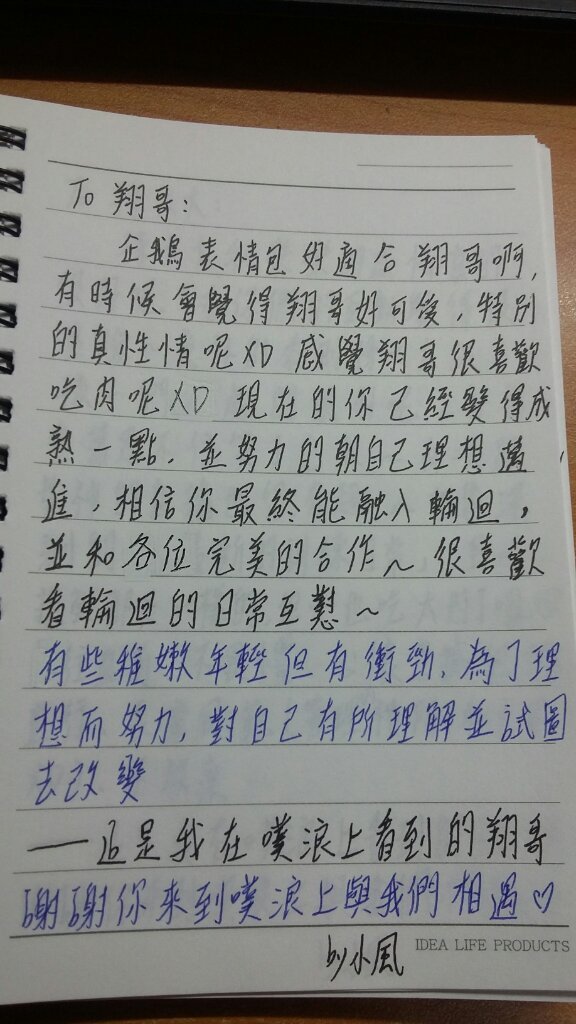 To 翔哥:
企鵝表情包好適合翔哥啊,
有時候會覺得翔哥好可後,特別
的真性情呢XD 感覺翔哥很喜歡
吃肉呢XD 現在的你已經變得成
熟一點,並努力的朝自己理想邁
進,相信你最終能融入輪迴,
並和各位完美的合作~很喜歡
看輪迴的日常互懟~
有些稚嫩年輕但有衝勁,為了理
想而努力,對自己有所理解並試圖
去改變
——這是我在噗浪上看到的翔哥
謝謝你來到噗浪上與我們相遇♡
by小風
IDEA LIFE PRODUCTS